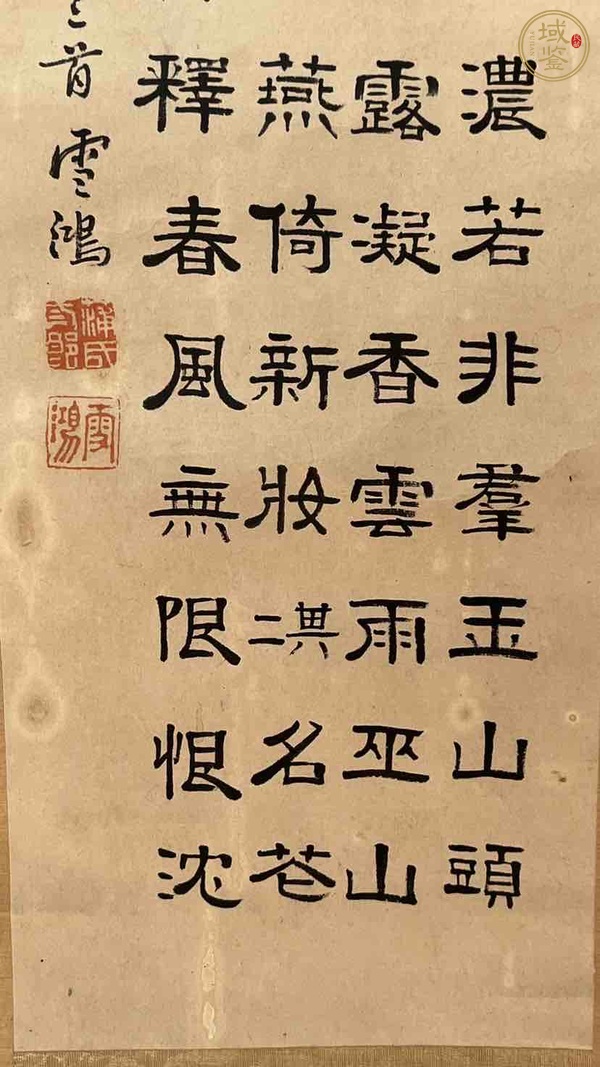 濃若非羣玉山頭
露凝香雲雨巫山
燕倚新妝其二名花
釋春風無限恨沈
首雪鴻
雪鴻
域鉴